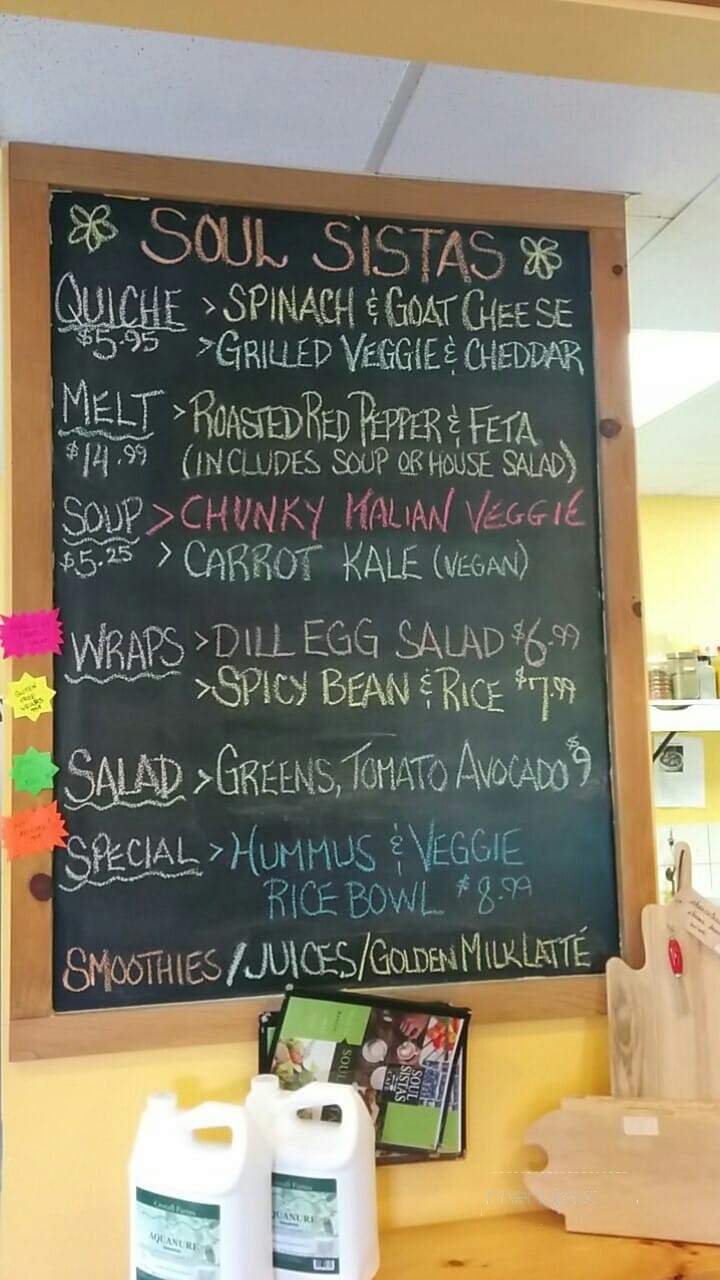 SOUL SISTAS
QUICHE > SPINACH & GOAT CHEESE
$5.95 > GRILLED VEGGIE & CHEDDAR
MELT > ROASTED RED PEPPER & FETA
$14.99 (INCLUDES SOUP OR HOUSE SALAD)
SOUP > CHUNKY ITALIAN VEGGIE
$5.25 > CARROT KALE (VEGAN)
WRAPS > DILL EGG SALAD $6.99
> SPICY BEAN & RICE $7.99
GLUTEN
FREE
WRAPS
SALAD > GREENS, TOMATO AVOCADO $9
SPECIAL > HUMMUS & VEGGIE
RICE BOWL $8.99
SMOOTHIES/JUICES/GOLDEN MILK LATTÉ
SOUL
SOUL
SISTAS
CAFÉ
AQUANURE
AQUANURE